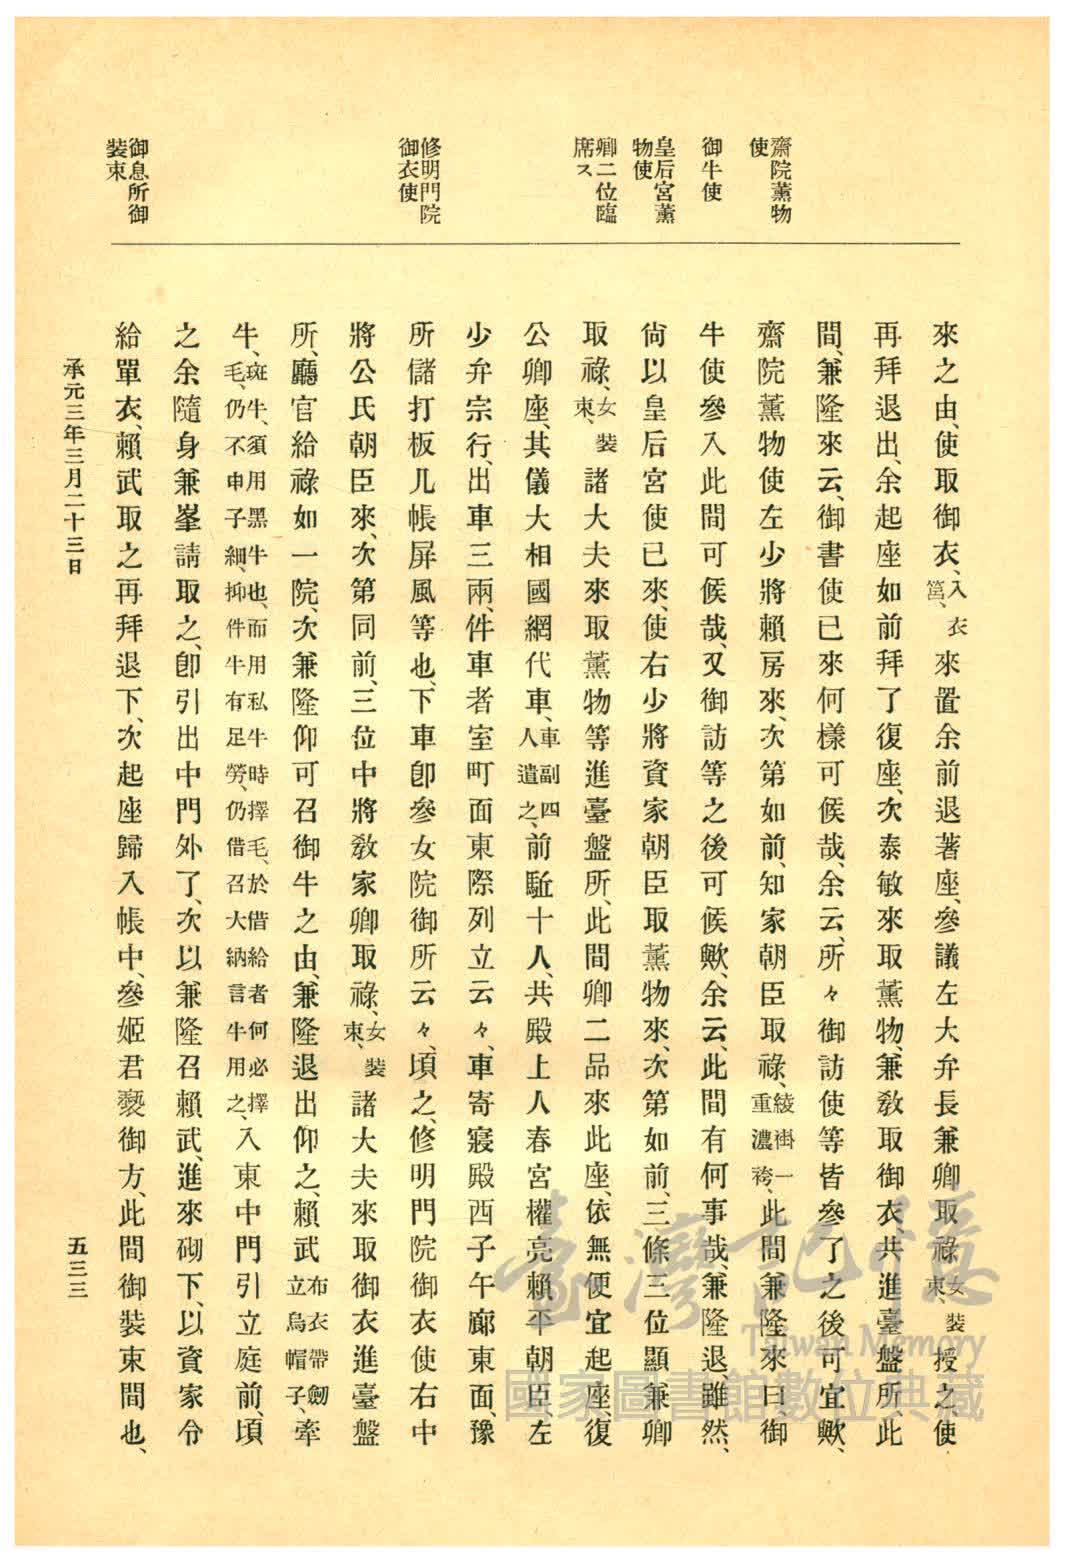 齋院薰物使
御牛使
皇后宮薰物使
卿二位臨席ス
修明門院御衣使
御息所御裝束
來之由、使取御衣、入衣筥、來置余前退著座、參議左大弁長兼卿取祿女裝束、授之使
再拜退出、余起座如前拜了復座、次泰敏來取薰物、兼敎取御衣、共進臺盤所、此
間、兼隆來云、御書使已來何樣可候哉、余云、所々御訪使等皆參了之後可宜歟、
齋院薰物使左少將賴房來、次第如前、知家朝臣取祿、綾褂一重濃袴、此間兼隆來曰、御
牛使參入此間可候哉、又御訪等之後可候歟、余云、此間有何事哉、兼隆退、雖然、
尙以皇后宮使已來、使右少將資家朝臣取薰物來、次第如前、三條三位顯兼卿
取祿、女裝束、諸大夫來取薰物等進臺盤所、此間卿二品來此座、依無便宜起座、復
公卿座、其儀大相國網代車、車副四人遣之、前駈十人、共殿上人春宮權亮賴平朝臣、左
少弁宗行、出車三兩、件車者室町面東際列立云々、車寄寢殿西子午廊東面、豫
所儲打板几帳屛風等也、下車卽參女院御所云々、頃之、修明門院御衣使右中
將公氏朝臣來、次第同前、三位中將敎家卿取祿、女裝束、諸大夫來取御衣進臺盤
所、廳官給祿如一院、次兼隆仰可召御牛之由、兼隆退出仰之、賴武布衣帶劒立烏帽子、牽
牛、斑牛、須用黑牛也、而用私牛時擇毛、於借給者何必擇毛、仍不申子細、抑件牛有足勞、仍借召大納言牛用之、入東中門引立庭前、頃
之余隨身兼峯請取之、卽引出中門外了、次以兼隆召賴武、進來砌下、以資家令
給單衣、賴武取之再拜退下、次起座歸入帳中、參姬君褻御方、此間御裝束間也、
承元三年三月二十三日
五三三
臺灣記憶
Taiwan Memory
國家圖書館數位典藏